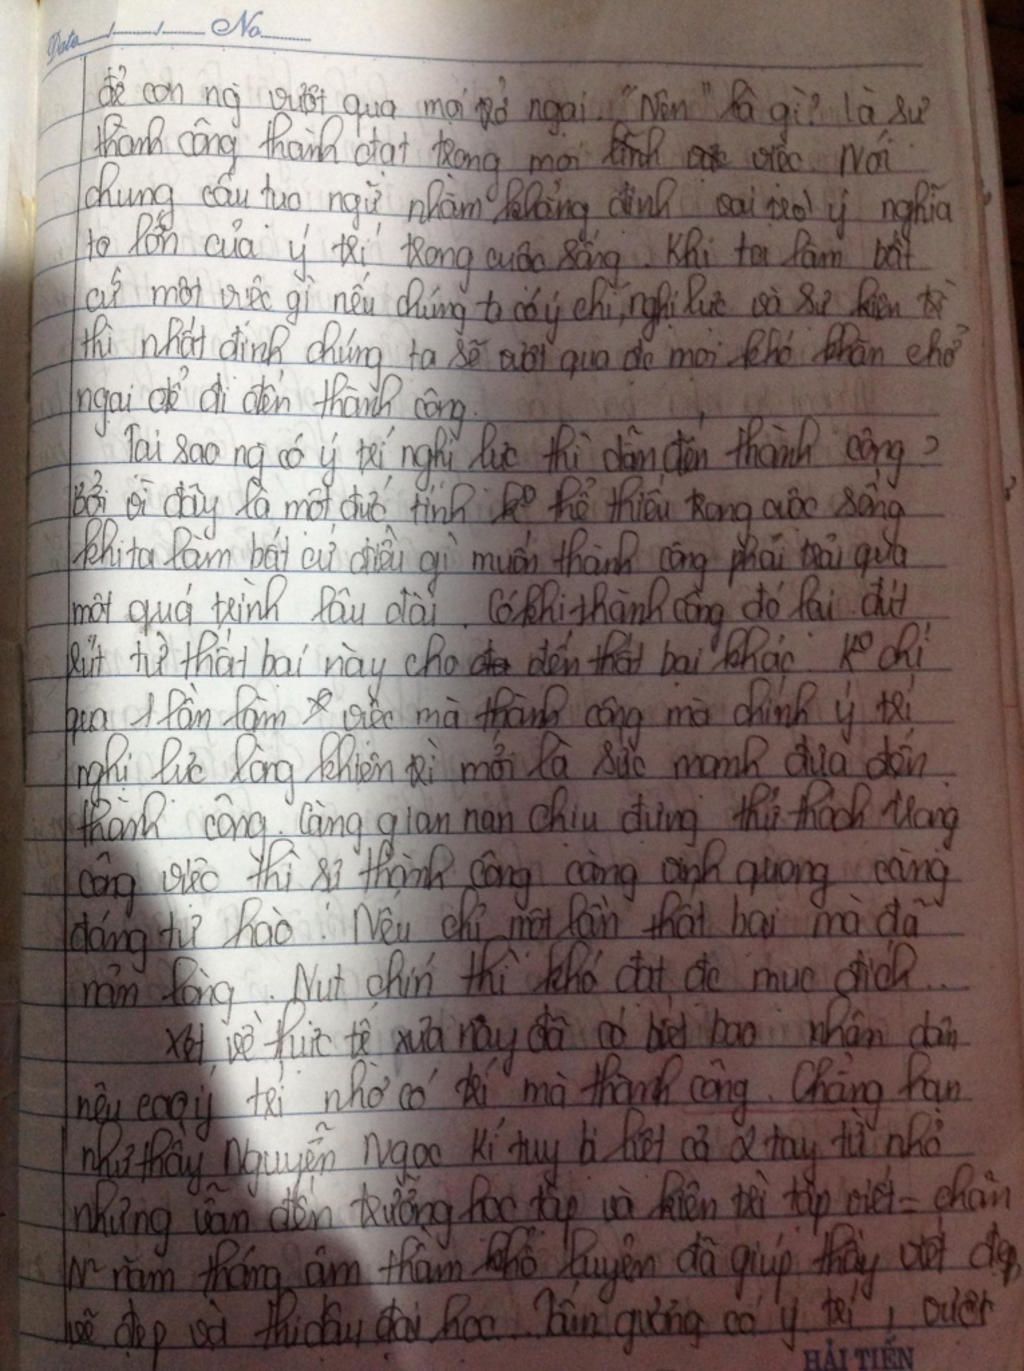 Date / / No
để con ng vượt qua mọi trở ngại. "Nên" là gì? là sự
thành công thành đạt trong mọi việc. Nói
chung câu tục ngữ nhằm khẳng định vai trò ý nghĩa
to lớn của ý trí trong cuộc sống. Khi ta làm bất
cứ một việc gì nếu chúng ta có ý chí, nghị lực và sự kiên trì
thì nhất định chúng ta sẽ vượt qua đc mọi khó khăn chở
ngại để đi đến thành công.
Tại sao ng có ý trí nghị lực thì dẫn đến thành công?
Bởi vì đây là một đức tính ko thể thiếu trong cuộc sống
khi ta làm bất cứ điều gì muốn thành công phải trải qua
một quá trình lâu dài. Có khi thành công đó lại đút
rút từ thất bại này cho đến thất bại khác. Ko chỉ
qua 1 lần làm việc mà thành công mà chính ý trí
nghị lực lòng khiên trì mới là sức mạnh đưa đến
thành công. Càng gian nan chịu đựng thử thách trong
công việc thì sự thành công càng vinh quang càng
đáng tự hào. Nếu chỉ một lần thất bại mà đã
nản lòng. Nut chín thì khó đạt đc mục đích..
Xét về thực tế xưa nay đã có biết bao nhân dân
nêu cao ý trí nhờ có trí mà thành công. Chẳng hạn
như thầy Nguyễn Ngọc Kí tuy bị liệt cả 2 tay từ nhỏ
nhưng vẫn đến trường học tập và kiên trì tập viết = chân
N~ năm tháng âm thầm khổ luyện đã giúp thầy viết đẹp,
vẽ đẹp và thi đậu đại học. Tấm gương có ý trí, vượt
HẢI TIẾN